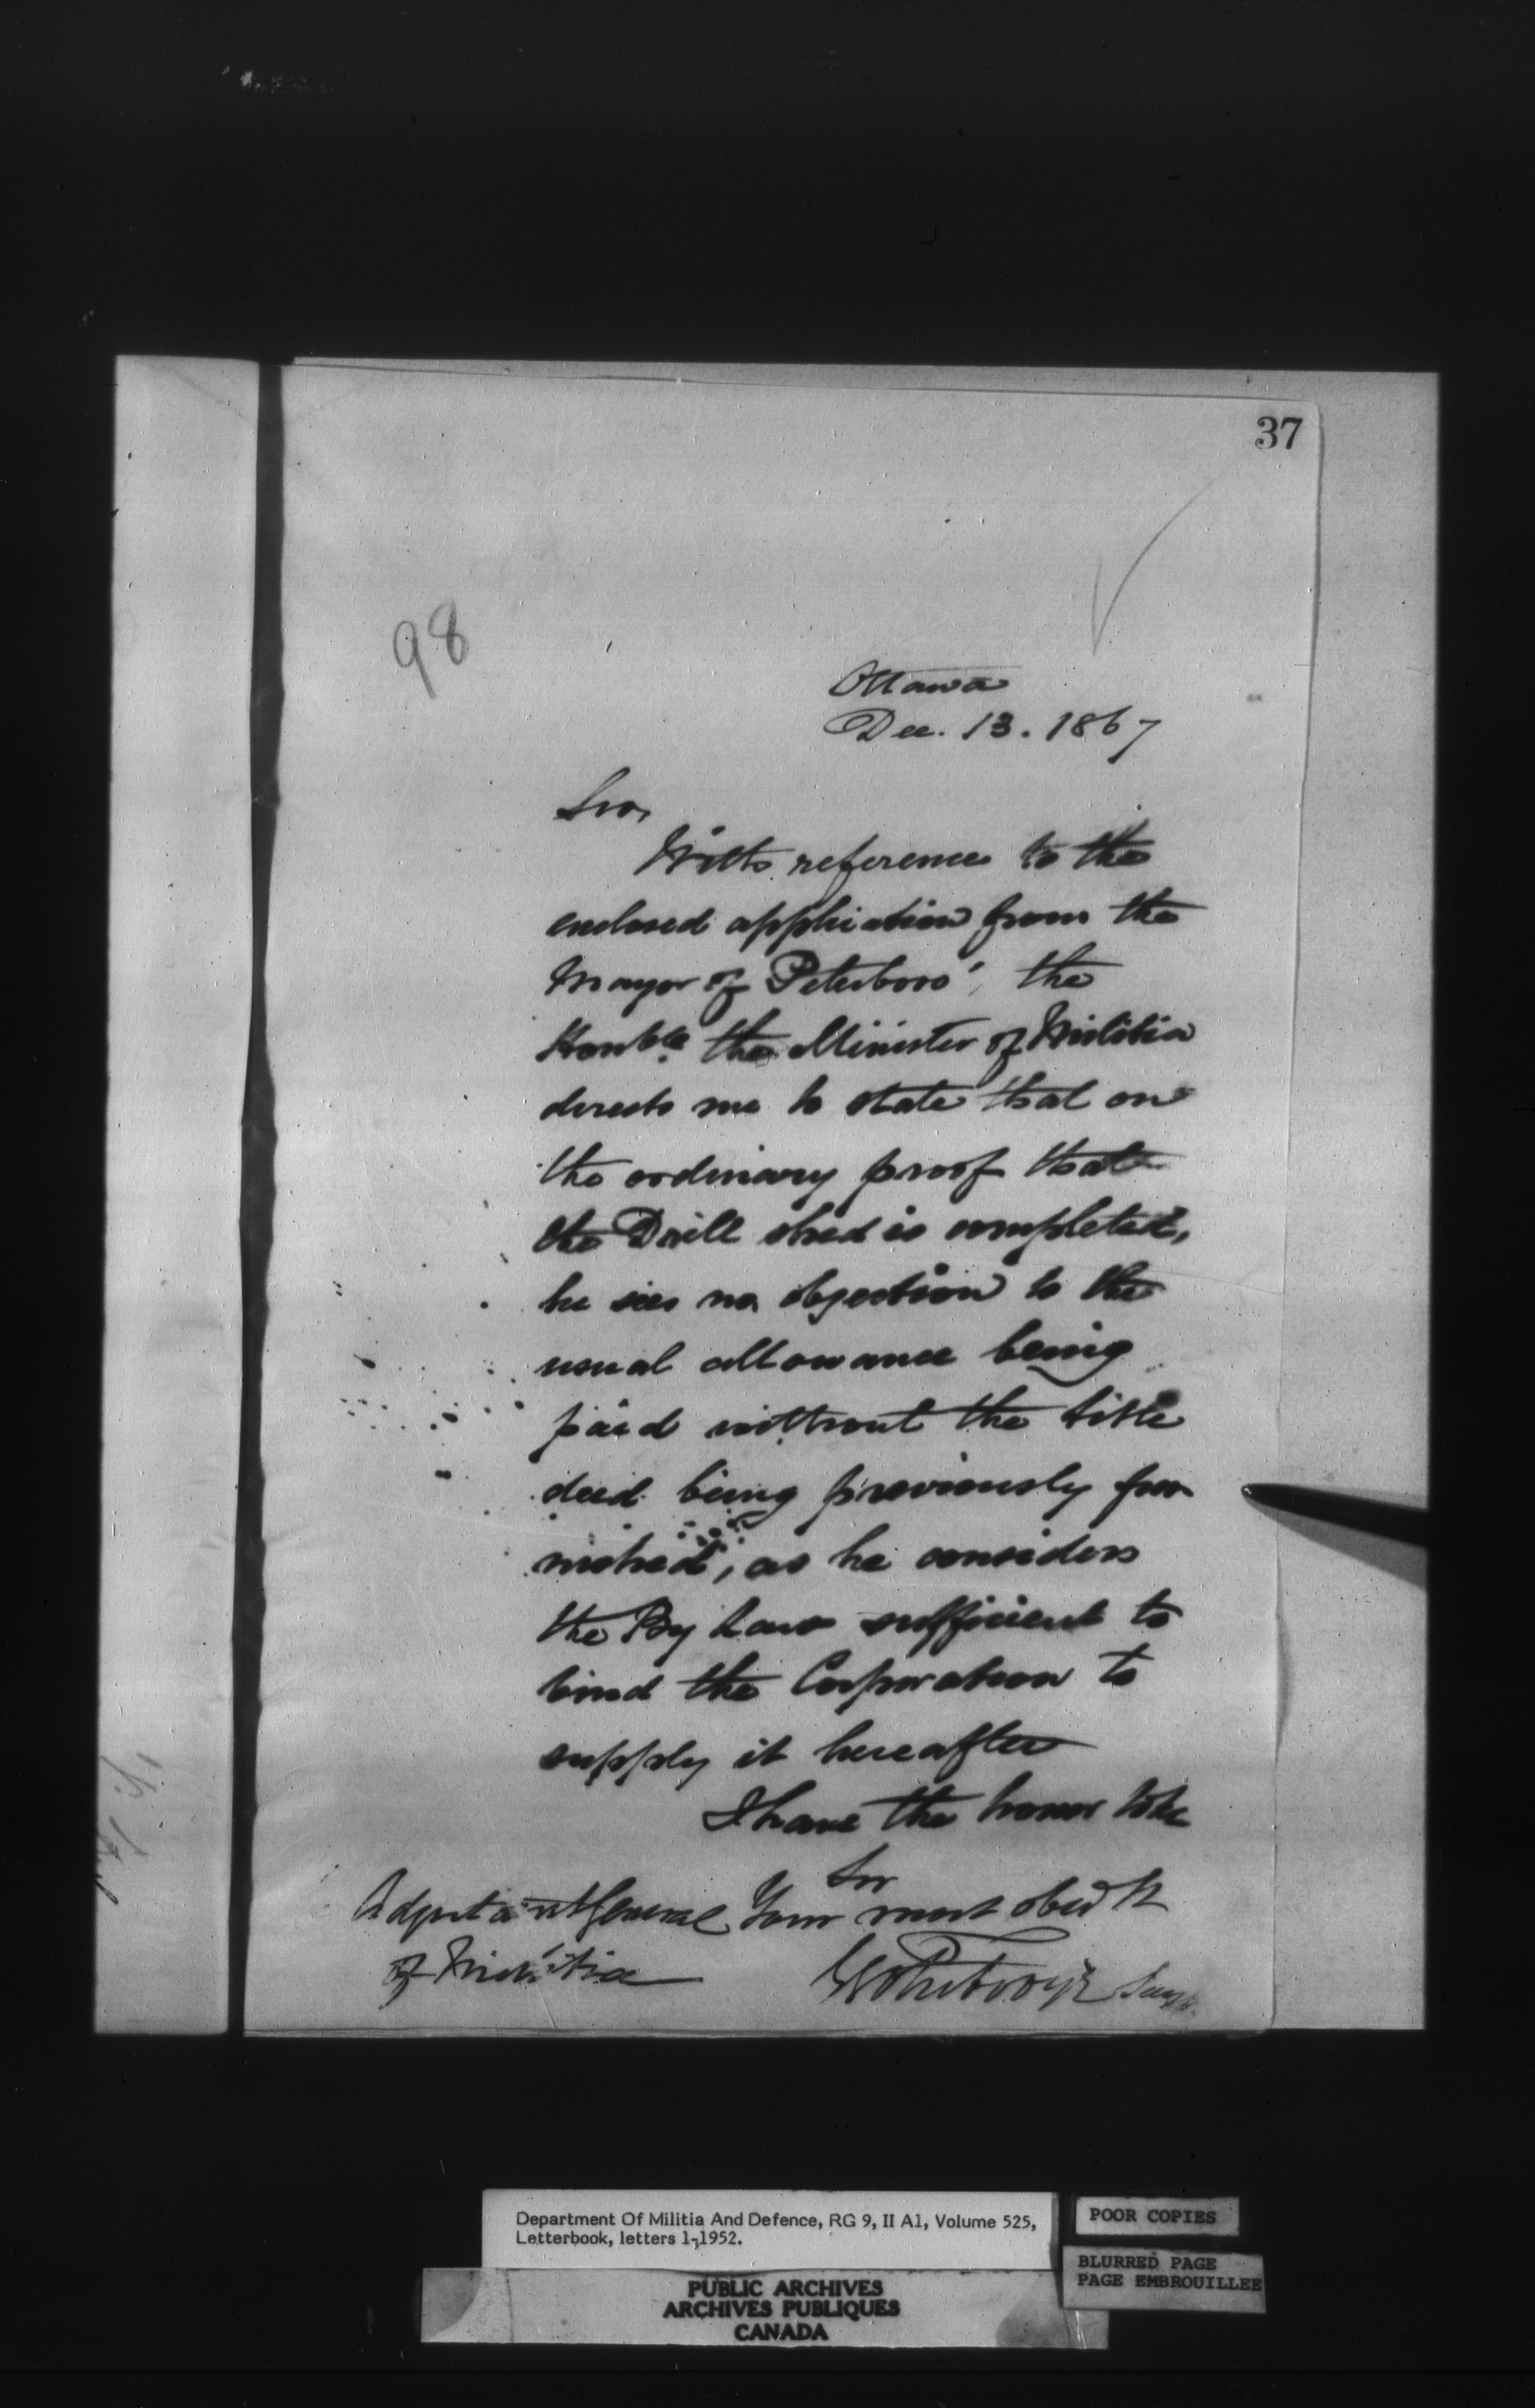 37
98
Ottawa
Dec. 13. 1867
Sir,
With reference to the
enclosed application from the
Mayor of Peterboro', the
Honble. the Minister of Militia
directs me to state that on
the ordinary proof that
the Drill shed is completed,
he sees no objection to the
usual allowance being
paid without the title
deed being previously fur
nished, as he considers
the By Law sufficient to
bind the Corporation to
supply it hereafter
I have the honor to be
Sir
Adjutant General Your most obedt
of Militia
Department Of Militia And Defence, RG 9, II A1, Volume 525,
Letterbook, letters 1-1952.
POOR COPIES
BLURRED PAGE
PAGE EMBROUILLEE
PUBLIC ARCHIVES
ARCHIVES PUBLIQUES
CANADA